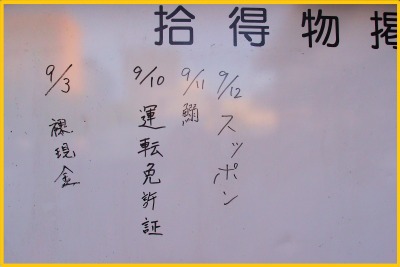 拾得物掲
9/3 裸現金
9/10 運転免許証
9/11 鰯
9/12 スッポン